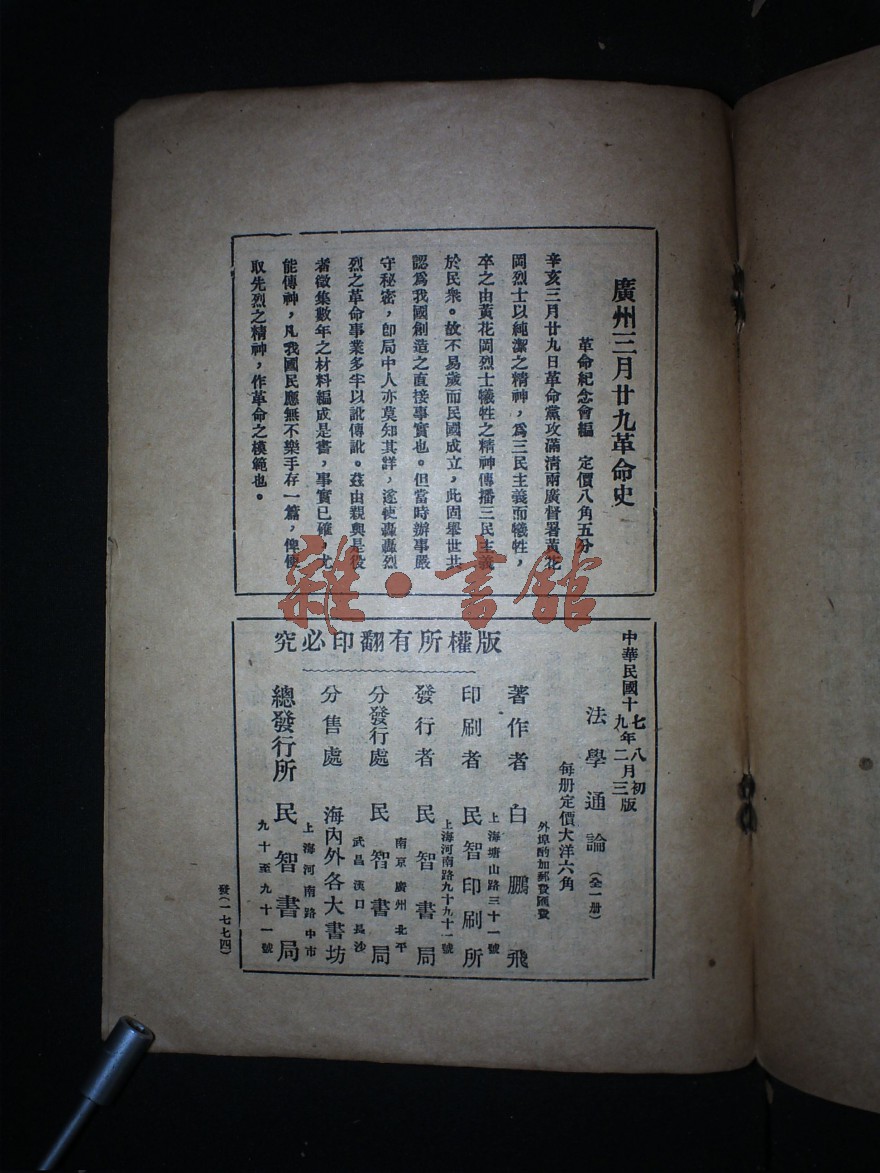 廣州三月廿九革命史
革命紀念會編　定價八角五分
辛亥三月廿九日革命黨攻滿清兩廣督署黃花
岡烈士以純潔之精神，爲三民主義而犧牲，
卒之由黃花岡烈士犧牲之精神傳播三民主義
於民衆。故不易歲而民國成立，此固舉世共
認爲我國創造之直接事實也。但當時辦事嚴
守秘密，卽局中人亦莫知其詳，遂使轟轟烈
烈之革命事業多半以訛傳訛。茲由親與是役
者徵集數年之材料編成是書，事實已確，尤
能傳神，凡我國民應無不樂手存一篇，俾便
取先烈之精神，作革命之模範也。
雜·書館
中華民國十七年八月初版
十九年二月三版
法學通論（全一册）
每册定價大洋六角
外埠酌加郵費匯費
著作者　白鵬飛
上海塘山路三十一號
印刷者　民智印刷所
上海河南路九十九十一號
發行者　民智書局
南京　廣州　北平
分發行處　民智書局
武昌　漢口　長沙
分售處　海內外各大書坊
上海河南路中市
總發行所　民智書局
九十至九十一號
版權所有翻印必究
發（一七七四）